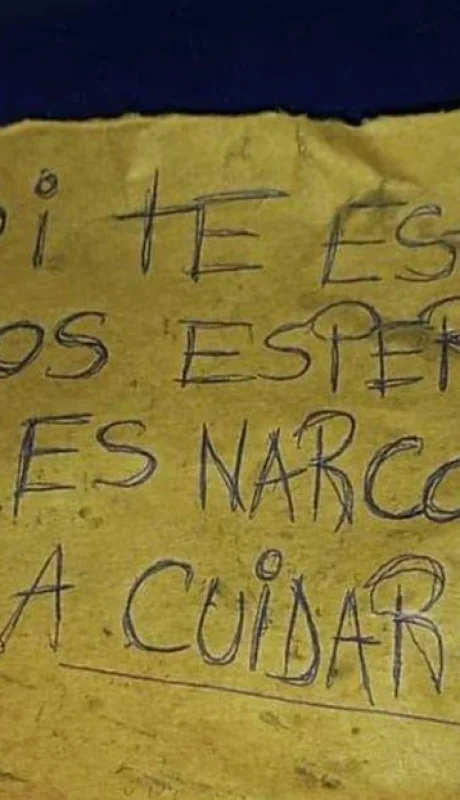 i TE ES
OS ESPER
ES NARCO
A CUiDAR